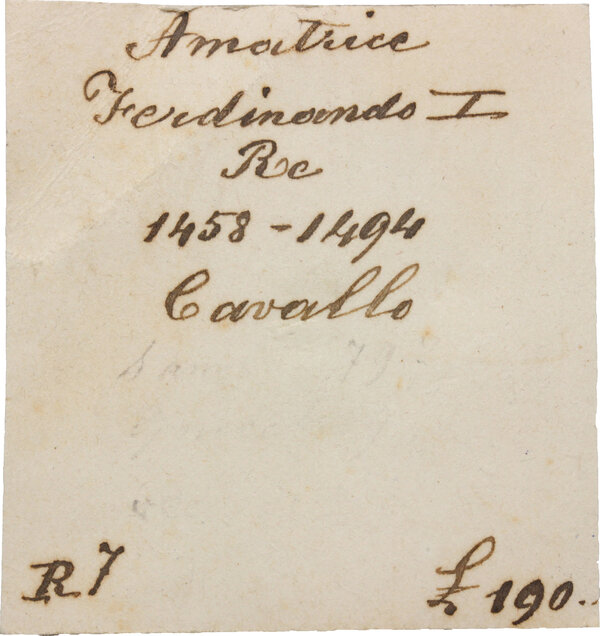 Amatrice
Ferdinando I
Re
1458-1494
Cavallo
R7
£ 190..